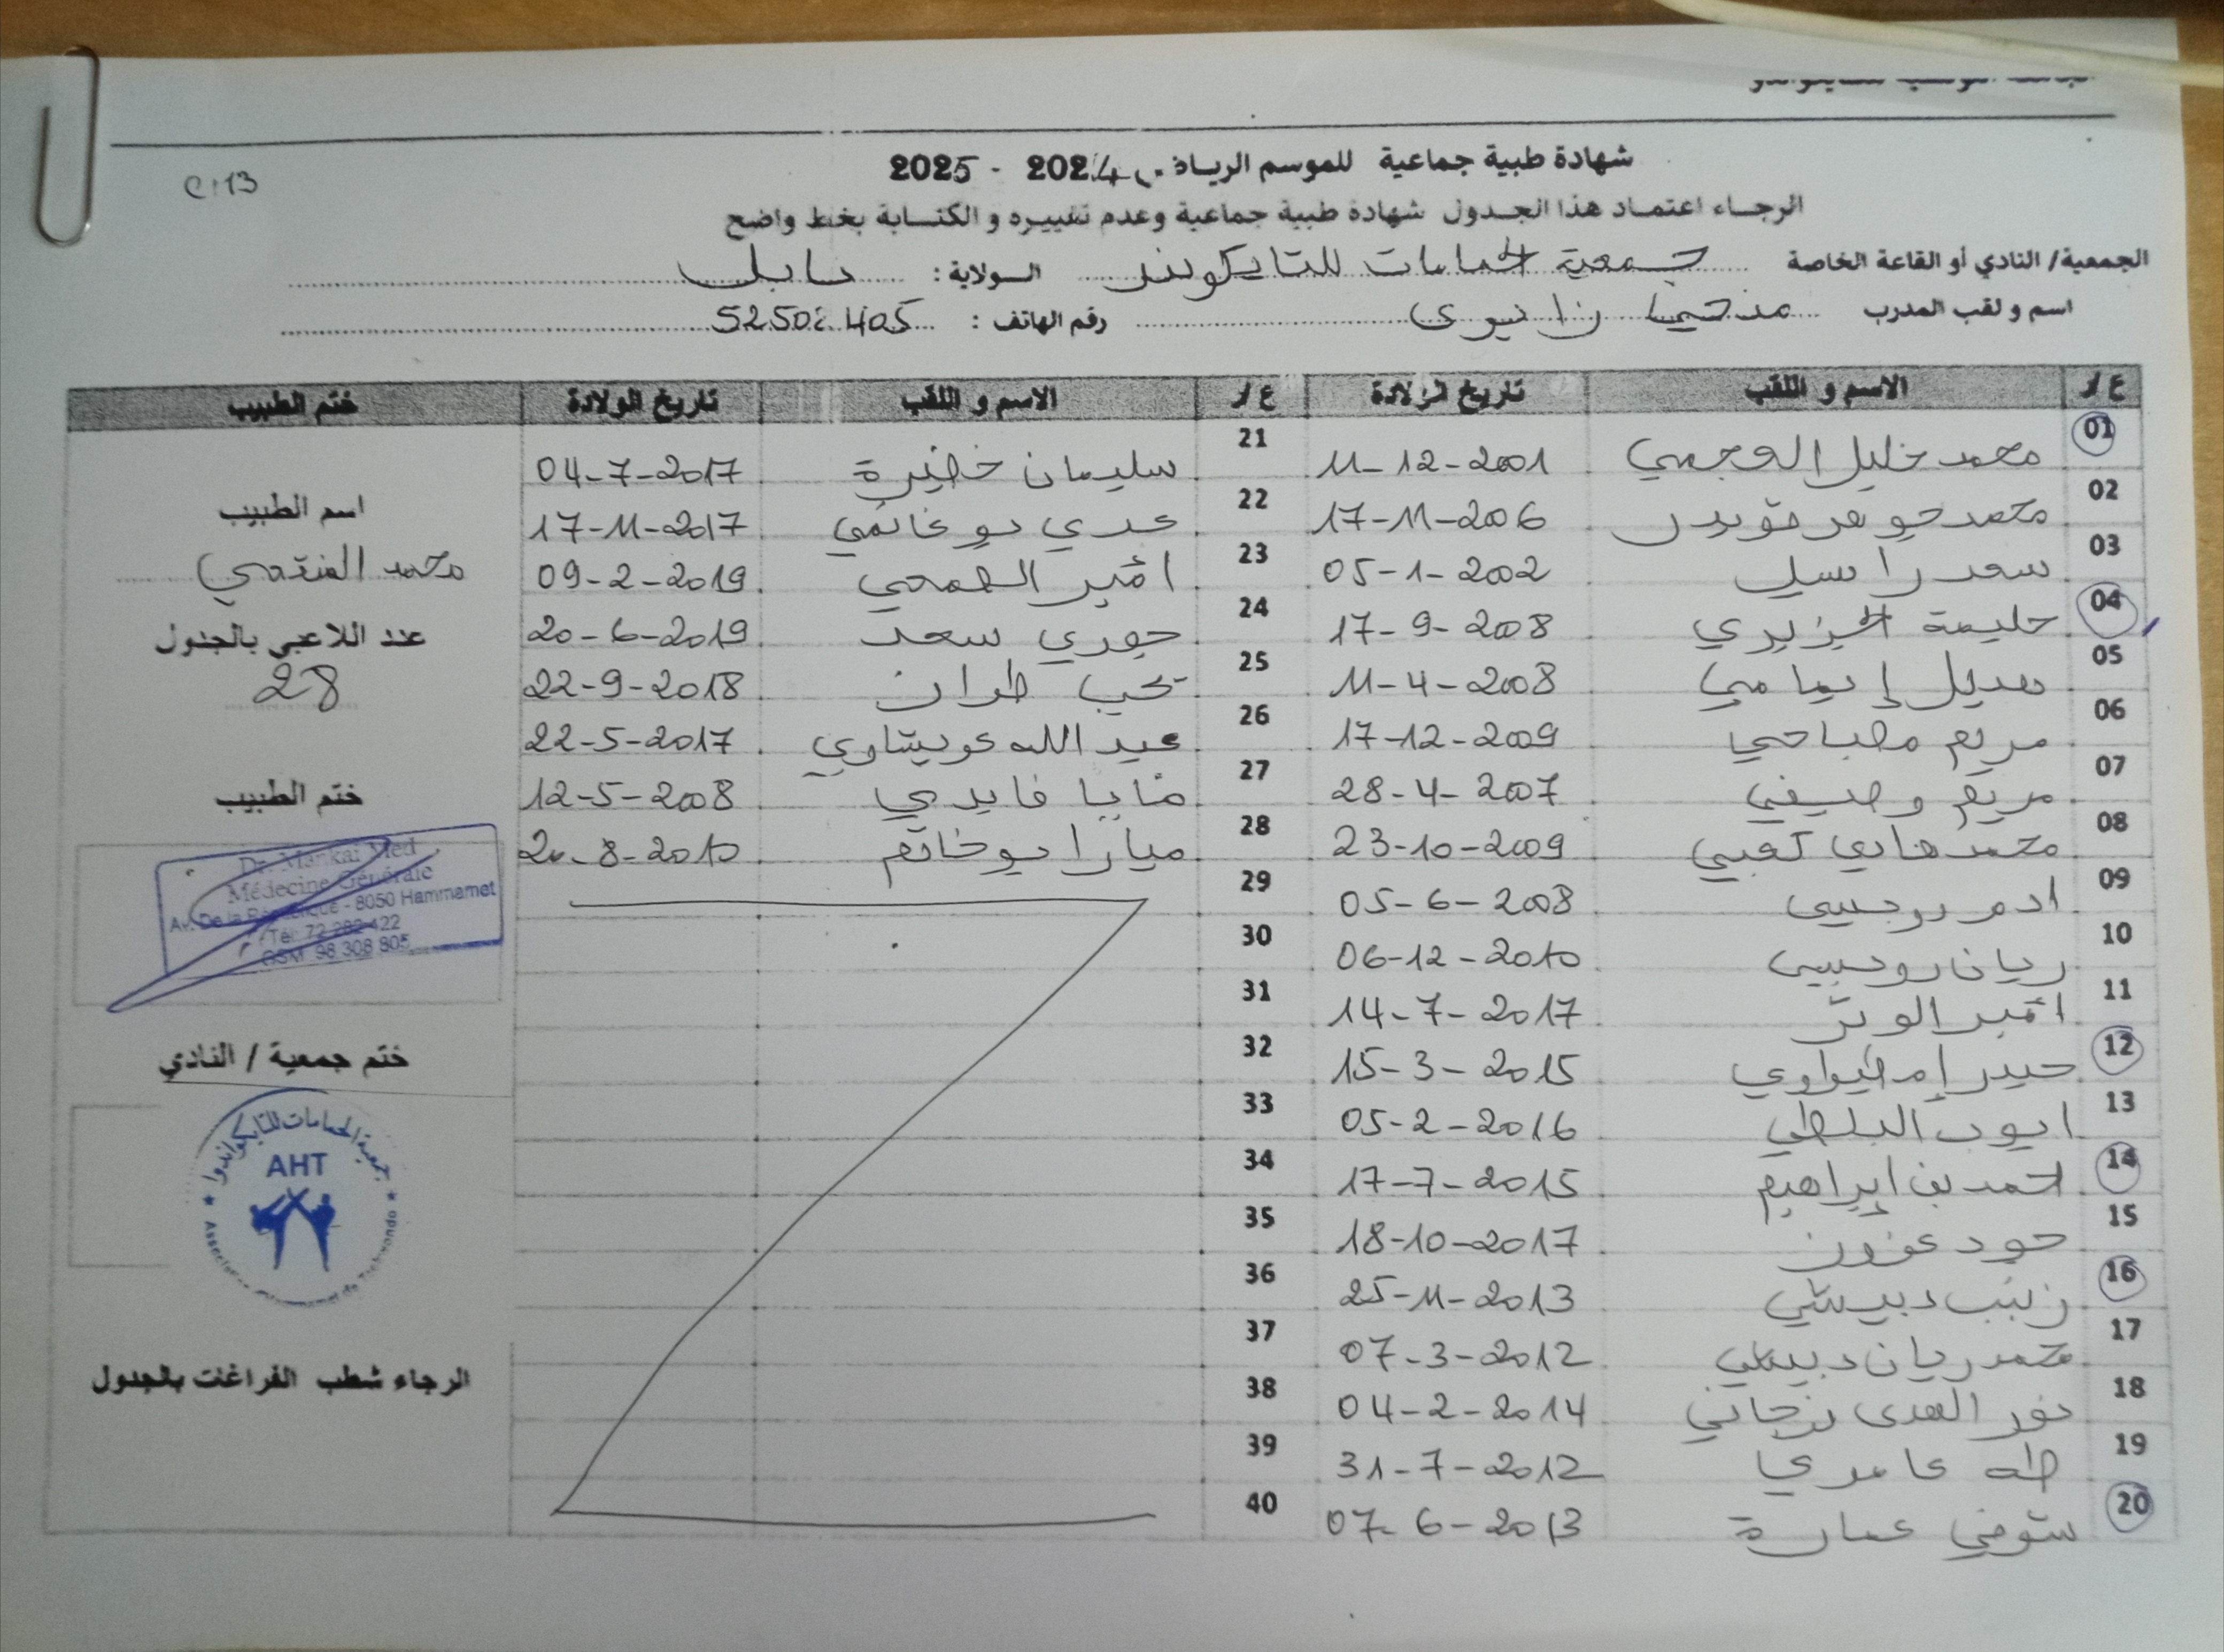 e:13
شهادة طبية جماعية للموسم الرياضي 2024 - 2025
الرجاء اعتماد هذا الجدول شهادة طبية جماعية وعدم تغييره و الكتابة بخط واضح
الجمعية/ النادي أو القاعة الخاصة جمعية الحمامات للتايكوندو الولاية : نابل
اسم و لقب المدرب رقم الهاتف :
ع / الاسم و اللقب تاريخ الولادة ع / الاسم و اللقب تاريخ الولادة ختم الطبيب
01 محمد خليل العجمي 11-12-2001 21 سليمان خضيرة 04-7-2017
02 محمد جوهر قويدر 17-11-2006 22 عدي بوغانمي 17-11-2017
03 سعد راسل 05-1-2002 23 أمير 09-2-2019
04 حليمة الجزيري 17-9-2008 24 جوري سعد 20-6-2019
05 هديل إيمامي 11-4-2008 25 22-9-2018
06 مريم مصباحي 17-12-2009 26 عبد الله عويشاوي 22-5-2017
07 مريم وصيفي 28-4-2007 27 مايا فايدي 12-5-2008
08 محمد هادي كعبي 23-10-2009 28 ميارا بوخاتم 20-8-2010
09 ادم روجبيي 05-6-2008 29
10 ريان روجبيي 06-12-2010 30
11 أمير الوتر 14-7-2017 31
12 حيدر 15-3-2015 32
13 ايوب البلطي 05-2-2016 33
14 احمد بن إبراهيم 17-7-2015 34
15 عزون 18-10-2017 35
16 زينب دبيشي 25-11-2013 36
17 محمد ريان دبيشي 07-3-2012 37
18 نور الهدى 04-2-2014 38
19 طه عامري 31-7-2012 39
20 عمارة 07-6-2013 40
اسم الطبيب
محمد المنقعي
عدد اللاعبي بالجدول
28
ختم الطبيب
Dr. Mankai Med
Médecine Générale
Av. De la République - 8050 Hammamet
Tél: 72 282 422
GSM 98 308 805
ختم جمعية / النادي
جمعية الحمامات للتايكواندوا
AHT
الرجاء شطب الفراغات بالجدول